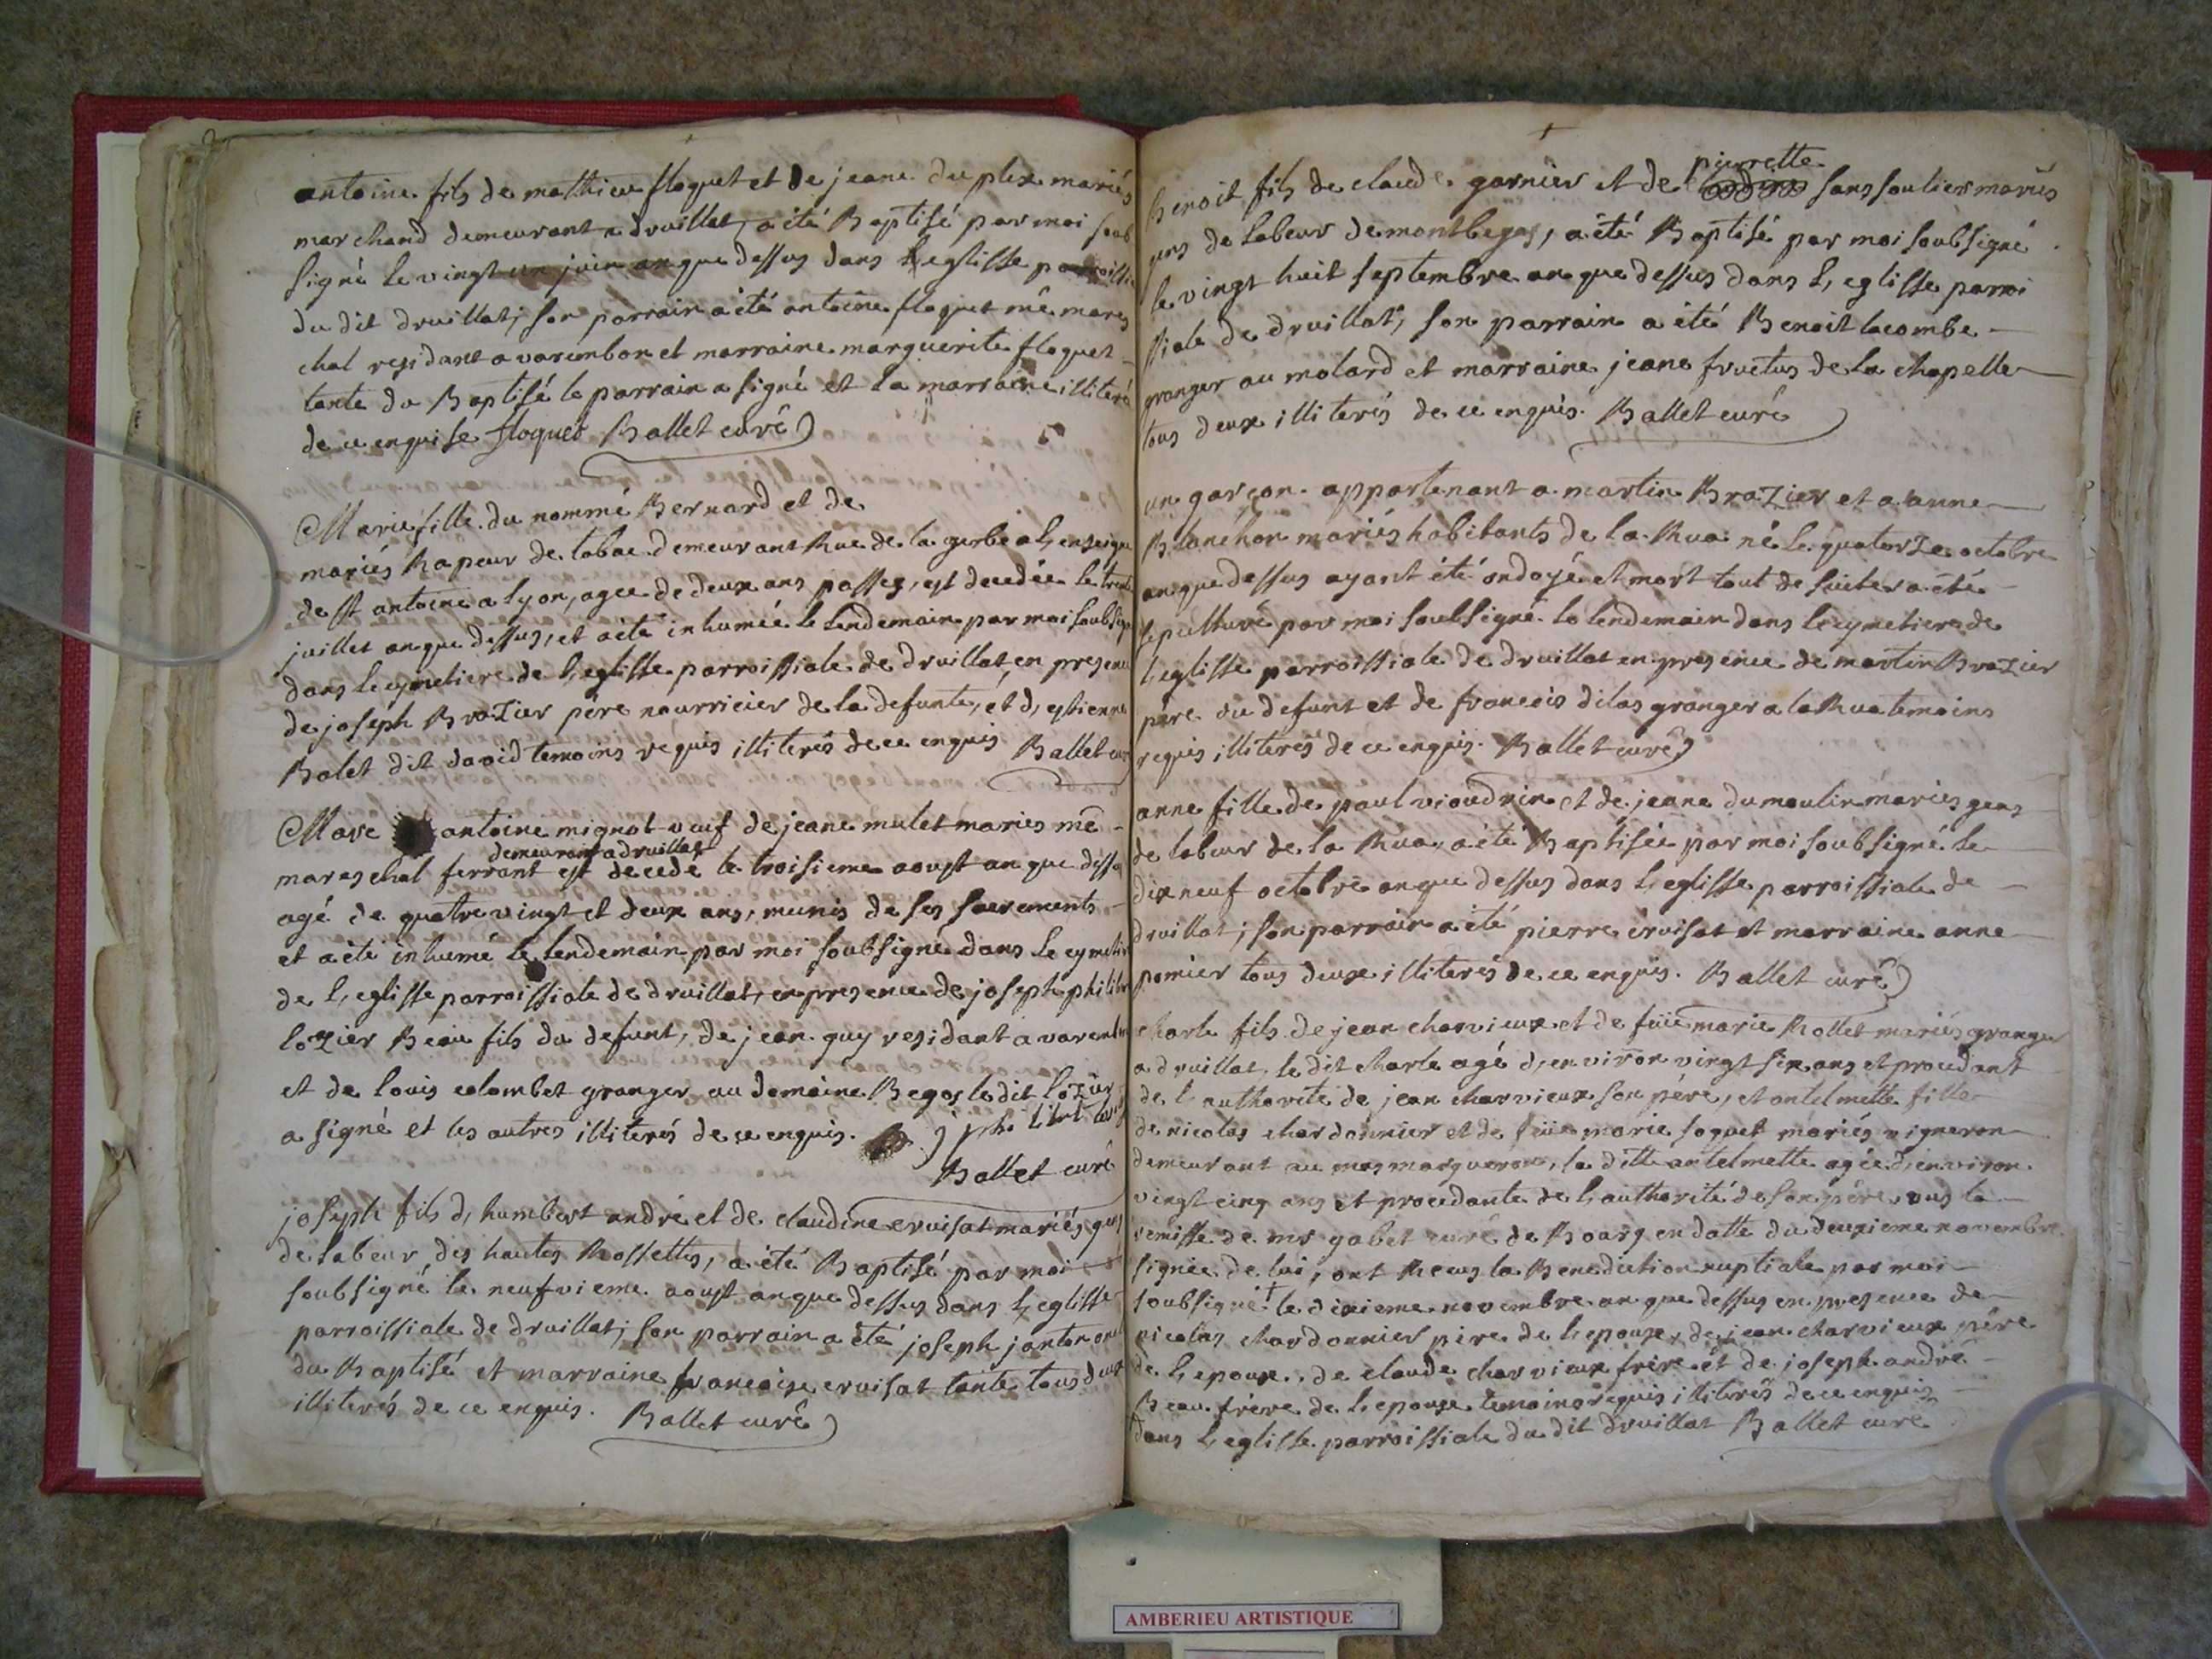 antoine fils de mathieu floquet et de jeane duplex mariés
marchand demeurant a druillat, a été Baptisé par moi soub
signé le vingt un juin an que dessus dans l'eglisse parroissi
du dit druillat; son parrain a été antoine floquet mê mares
chal residant a varembon et marraine marguerite floquet
tante du Baptisé le parrain a signé et la marraine illiteré
de ce enquise floquet Ballet curé
Marie fille du nommé Bernard et de
mariés Rapeur de tabac demeurant Rue de la gerbe a l,enseigne
de st antoine a lyon, agée de deux ans passez, est decedée le trente
juillet an que dessus, et a été inhumée le lendemain par moi soubsigné
dans le cymetiere de l,eglisse parroissiale de druillat, en presence
de joseph Brazier pére nourricier de la defunte, et d, estienne
Balet dit david temoins requis illiterés de ce enquis Ballet curé
Marc antoine mignot veuf de jeane mulet mariés mê
demeurant a druillat
mareschal ferrant est decedé le troisieme aoust an que dessus
agé de quatre vingt et deux ans, munis de ses sacrements
et a été inhumé le lendemain par moi soubsigné dans le cymetiere
de l,eglisse parroissiale de druillat, en presence de joseph philibe
lozier Beau fils du defunt, de jean guy residant a varembon
et de louis colombet granger au domaine Begos le dit lozier
a signé et les autres illiterés de ce enquis.
Ballet curé
joseph fils d, humbert andré et de claudine cruisat mariés gens
de labeur des hautes Rossettes, a été Baptisé par moi
soubsigné le neufvieme aoust an que dessus dans l,eglisse
parroissiale de druillat; son parrain a été joseph janton oncle
du Baptisé et marraine francoise cruisat tante tous deux
illiterés de ce enquis. Ballet curé
pierrette
Benoit fils de claude garnier et de sanssoulier mariés
gens de labeur de montbegos, a été Baptisé par moi soubsigné
le vingt huit septembre an que dessus dans l, eglisse parroi
ssiale de druillat; son parrain a été Benoit lacombe
granger au molard et marraine jeane fructus de la chapelle
tous deux illiterés de ce enquis. Ballet curé
un garçon appartenant a martin Brazier et a anne
Blanéhon mariés habitants de la Rua né le quatorze octobre
an que dessus ayant été ondoyé et mort tout de suite a été
sepulturé par moi soubsigné le lendemain dans le cymetiere de
l,eglisse parroissiale de druillat en presence de martin Brazier
pére du defunt et de francois dilas granger a la Rua temoins
requis illiterés de ce enquis. Ballet curé
anne fille de paul vioudrin et de jeane dumoulin mariés gens
de labeur de la Rua, a été Baptisée par moi soubsigné le
dix neuf octobre an que dessus dans l,eglisse parroissiale de
druillat; son parrain a été pierre cruisat et marraine anne
pomier tous deux illiterés de ce enquis. Ballet curé
charle fils de jean charvieux et de füe marie Rollet mariés granger
a druillat, le dit charle agé d, environ vingt six ans et procedant
de l'authorité de jean charvieux son pére, et antelmette fille
de nicolas chardonnier et de füe marie soquet mariés vigneron
demeurant au mas marqueron, la ditte antelmette agée d,environ
vingt cinq ans et procedante de l,authorité de son pére, vus la
remisse de mr gabet curé de Bourg en datte du deuxieme novembre
signée de lui, ont Recus la Benediction nuptiale par moi
soubsigné † le dixieme novembre an que dessus en presence de
nicolas chardonnier pére de l,epouse, de jean charvieux pére
de l,epoux, de claude charvieux frére et de joseph andré
Beau frére de l,epouse temoins requis illiterés de ce enquis
dans l,eglisse parroissiale du dit druillat Ballet curé
AMBERIEU ARTISTIQUE